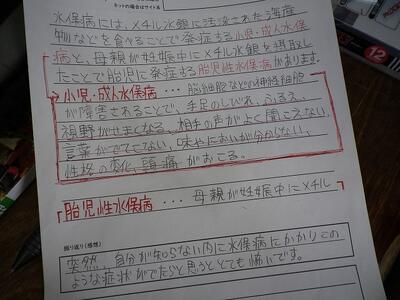 ネットの場合はサイト名
水俣病には、メチル水銀に汚染された海産
物などを食べることで発症する小児・成人水俣
病と、母親が妊娠中にメチル水銀を摂取し
たことで胎児に発症する胎児性水俣病があります。
→小児・成人水俣病 ・・・ 脳細胞などの神経細胞
が障害されることで、手足のしびれ、ふるえ、
視野がせまくなる、相手の声がよく聞こえない、
言葉がでてこない、味やにおいが分からない、
性格の変化、頭痛がおこる。
胎児性水俣病 ・・・ 母親が妊娠中にメチル
振り返り(感想)
突然、自分が知らない内に水俣病にかかりこの
ような症状がでたらと思うととても怖いです。
12